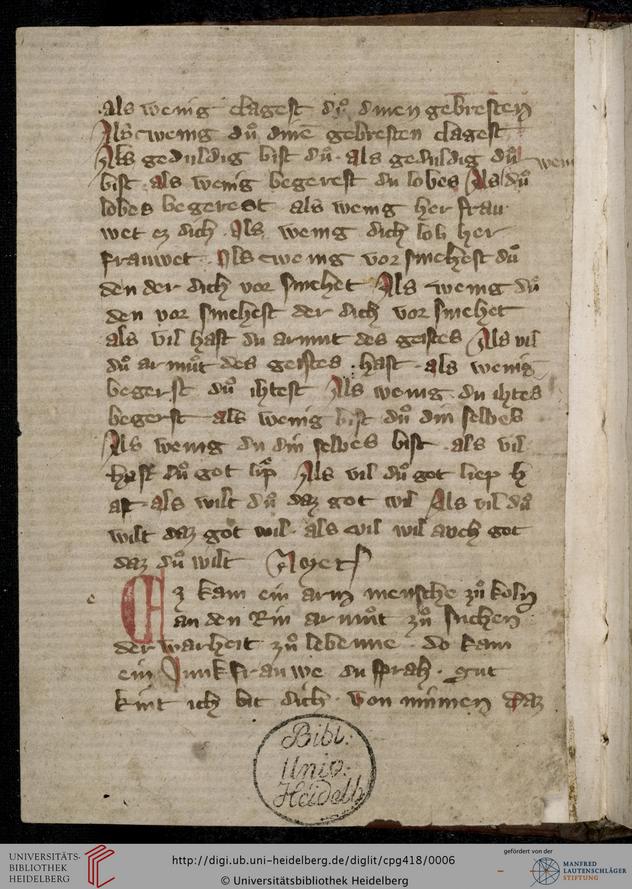 als wenig clagest dů dinen gebresten
Als wenig dů dine gebresten clagest
Als geduldig bist dů · als geduldig dů
bist · als wenig begerest du lobes Als dů
lobes begerest als wenig her frau
wet ez dich · Als wenig dich lob her
frauwet · Als wenig vor smehest dů
den der dich vor smehet Als wenig dů
den vor smehest der dich vor smehet
als vil hast du armut des geistes Als vil
dů armůt des geistes · hast · als wenig
begerst dů ihtest Als wenig du ihtes
begerst als wenig bist dů din selbes
Als wenig du din selbes bist · als vil
hast dů got lip Als vil dů got liep h
ast · als wilt dů daz got wil Als vil dů
wilt daz got wil · als vil wil auch got
daz dů wilt
Ez kam ein arm mensche zů koln
an den Rin armůt zů suchen
der warheit zů lebenne · do kam
ein Junkfrauwe du sprah · gut
kint ich bit dich · von minnen daz
e
Bibl:
Univ:
Heidelb
UNIVERSITÄTS-
BIBLIOTHEK
HEIDELBERG
http://digi.ub.uni-heidelberg.de/diglit/cpg418/0006
© Universitätsbibliothek Heidelberg
gefördert von der
MANFRED
LAUTENSCHLÄGER
STIFTUNG